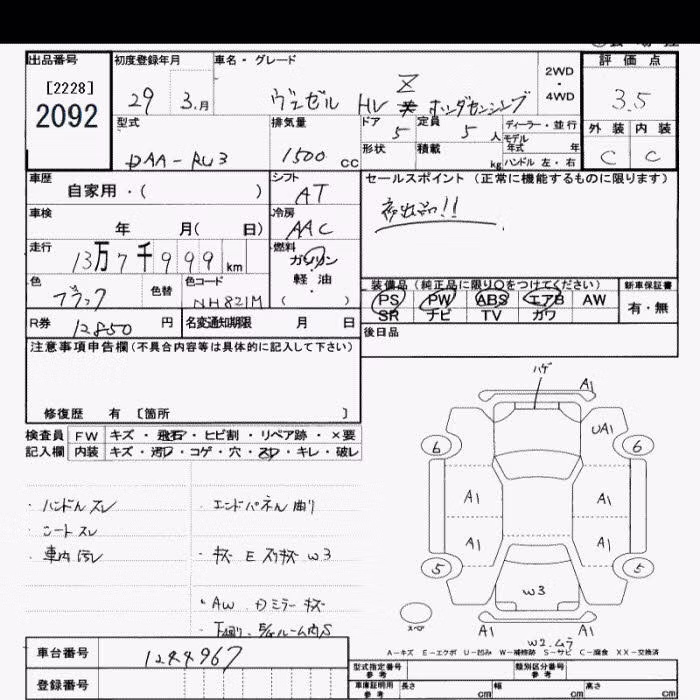 出品番号 初度登録年月 車名・グレード 2WD・4WD 評価点
[2228]
2092
29 3.月 ヴェゼル HV Z ホンダセンシング 3.5
型式 排気量 ドア 定員 ディーラー・並行 外装 内装
DAA-RU3 1500 cc 5 5人 モデル年式 年 C C
形状 積載 kg ハンドル 左・右
車歴 シフト セールスポイント (正常に機能するものに限ります)
自家用・( ) AT
車検 冷房
年 月(日) AAC
走行 燃料
13万7千999km ガソリン・軽油( )
色 色替 色コード 装備品(純正品に限り○をつけてください) 新車保証書
ブラック NH821M PS PW ABS エアB AW 有・無
SR ナビ TV カワ
R券 12850円 名変通知期限 月 日 後日品
注意事項申告欄(不具合内容等は具体的に記入して下さい)
修復歴 有 [箇所 ]
検査員 FW キズ・飛石・ヒビ割・リペア跡・×要
記入欄 内装 キズ・汚れ・コゲ・穴・スレ・キレ・破レ
・ハンドルスレ ・エンドパネル曲り
・シートスレ
・車内汚レ ・キズ E スリキズ W3
・AW ドミラー キズ
ハゲ
A1
UA1
6 6
A1 A1
A1 A1
5 5
W3
スペア
A1 A1
W2.ムラ
A-キズ E-エクボ U-凹み W-補修跡 S-サビ C-腐食 XX-交換済
車台番号 1244967
登録番号
型式指定番号 参考 類別区分番号 参考
車庫証明用 参考 長さ cm 幅 cm 高さ cm